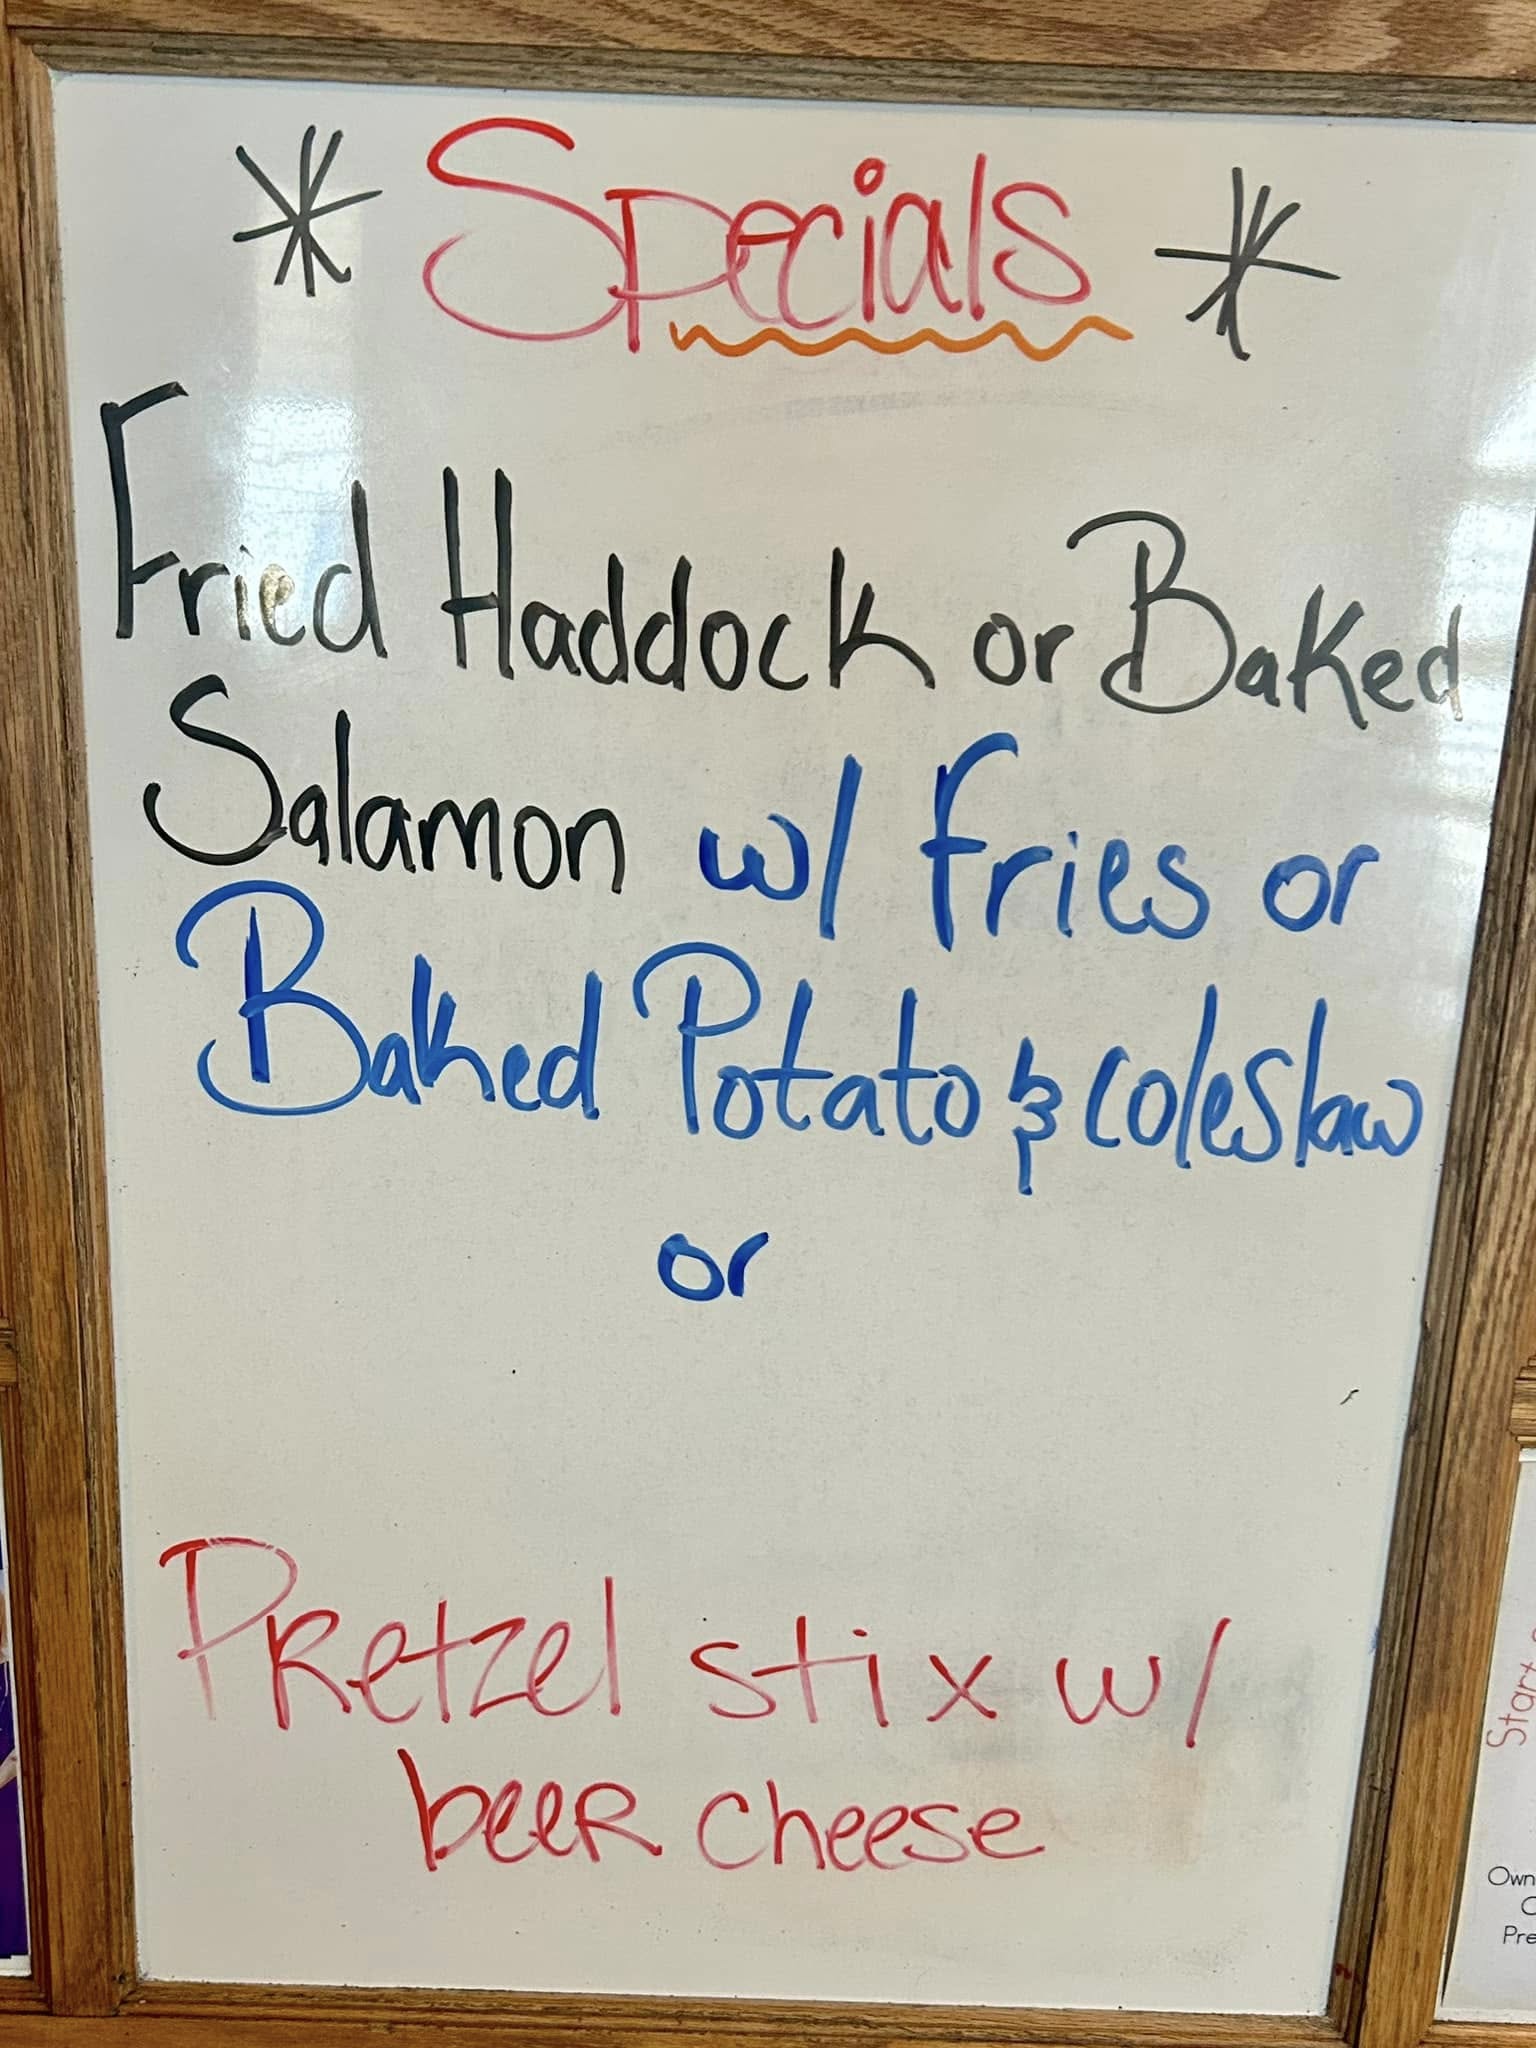 * Specials *
Fried Haddock or Baked
Salamon w/ fries or
Baked Potato & coleslaw
or
Pretzel stix w/
beer cheese
Start
Own
Pre